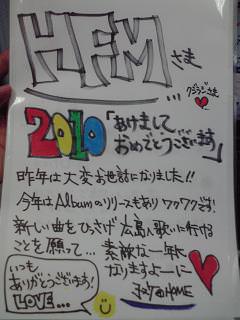 HFM さま
クジラジさま
...
2010 「あけまして
おめでとうございます」
昨年は大変お世話になりました!!
今年はAlbumのリリースもあり ワクワクです!
新しい曲をひっさげ 広島へ歌いに行ける
ことを願って... 素敵な一年に
なりますよーに
いつも
ありがとうございます!
LOVE...
HOME